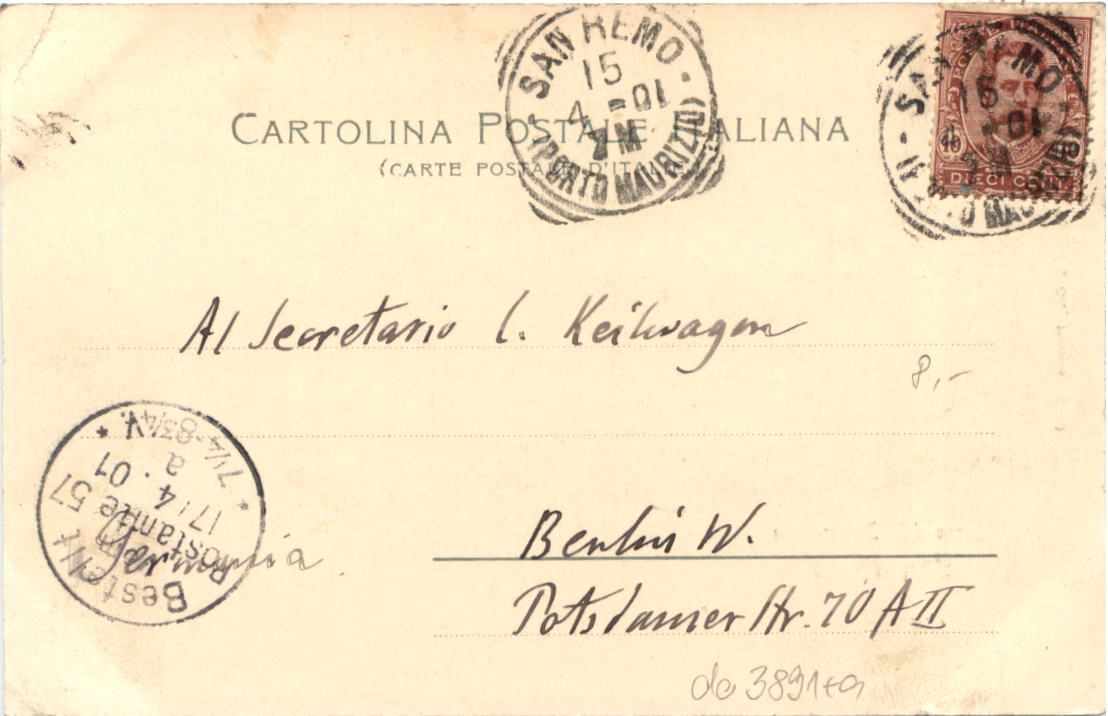 SAN REMO
15
4-01
M
(PORTO MAURIZIO)
SAN REMO
15
01
DIECI CENT
CARTOLINA POSTALE ITALIANA
(CARTE POSTALE D'ITALIE)
Al Secretario C. Keilwagen
8,-
Bestellt
Postamte 57
17/4.01
a
* 7 1/4-8 3/4 V. *
Germania
Berlin W.
Potsdamer Str. 70 A II
do 3891+a